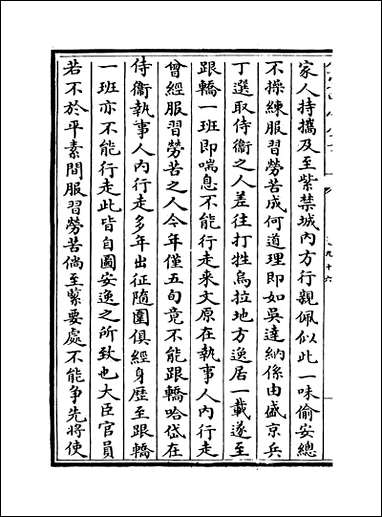 家人持攜及至紫禁城内方行親佩似此一味偷安總
不操練服習勞苦成何道理即如吳達納係由盛京兵
丁選取侍衞之人差往打牲烏拉地方逸居一載遂至
跟轎一班即喘息不能行走来文原在執事人内行走
曾經服習勞苦之人今年僅五旬竟不能跟轎哈岱在
侍衞執事人内行走多年出征隨圍俱經身歴至跟轎
一班亦不能行走此皆自圖安逸之所致也大臣官員
若不於平素間服習勞苦倘至緊要處不能争先將使